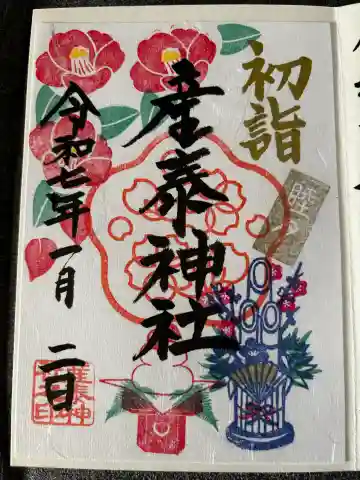 初詣
睦月
産泰神社
令和七年一月二日